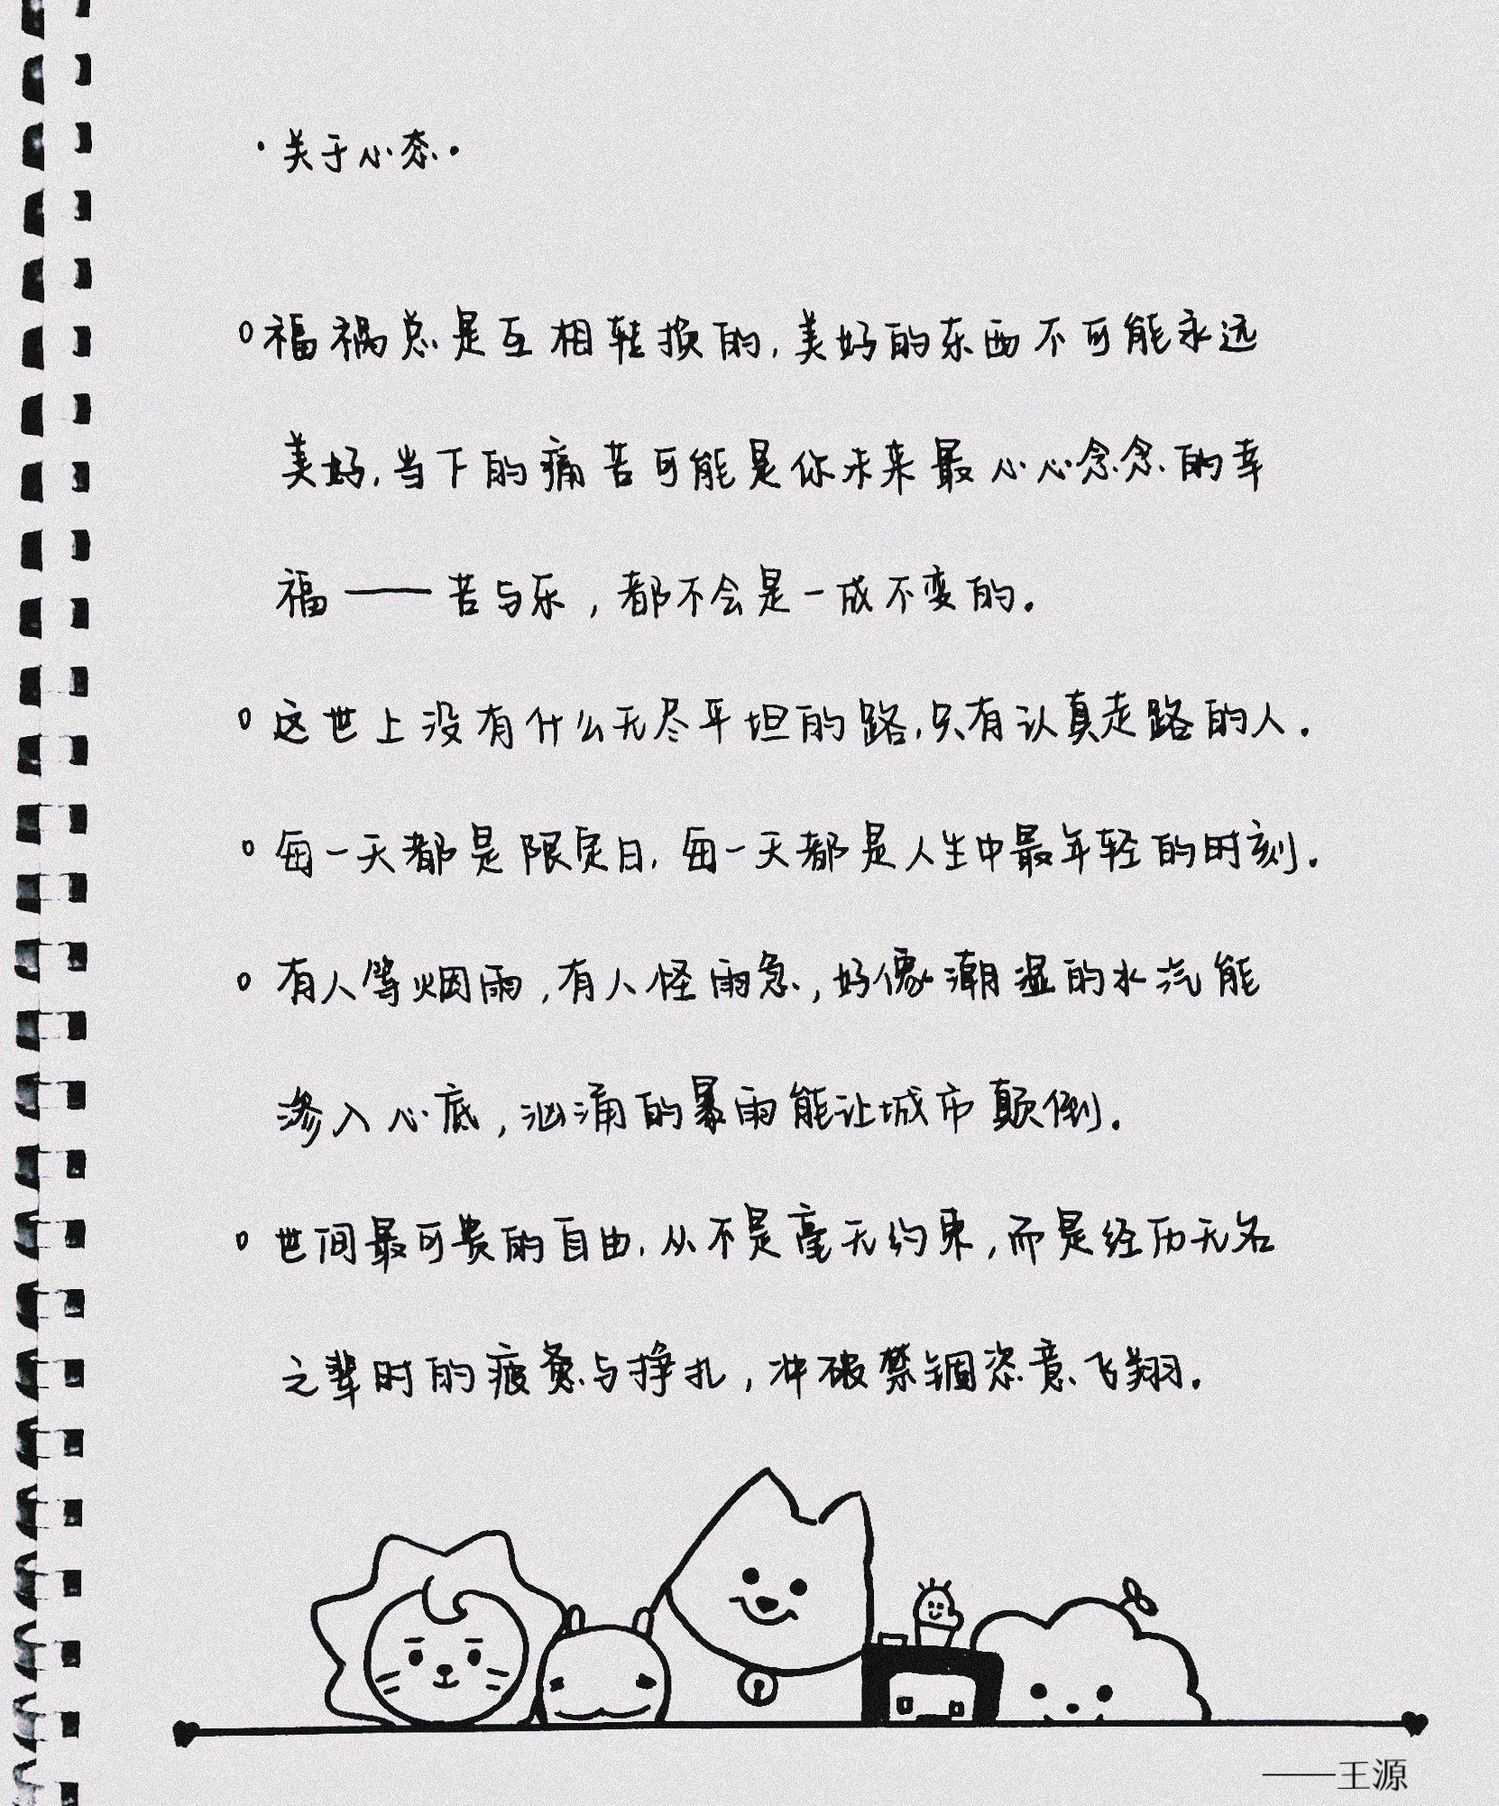 ·关于小态·
福祸总是互相转换的,美好的东西不可能永远
美好,当下的痛苦可能是你未来最小心念念的幸
福——苦与乐,都不会是一成不变的.
这世上没有什么无尽平坦的路,只有认真走路的人.
每一天都是限定日,每一天都是人生中最年轻的时刻.
有人等烟雨,有人怪雨急,好像潮湿的水汽能
渗入心底,汹涌的暴雨能让城市颠倒.
世间最可贵的自由,从不是毫无约束,而是经历无名
之辈时的疲惫与挣扎,冲破禁锢恣意飞翔.
——王源